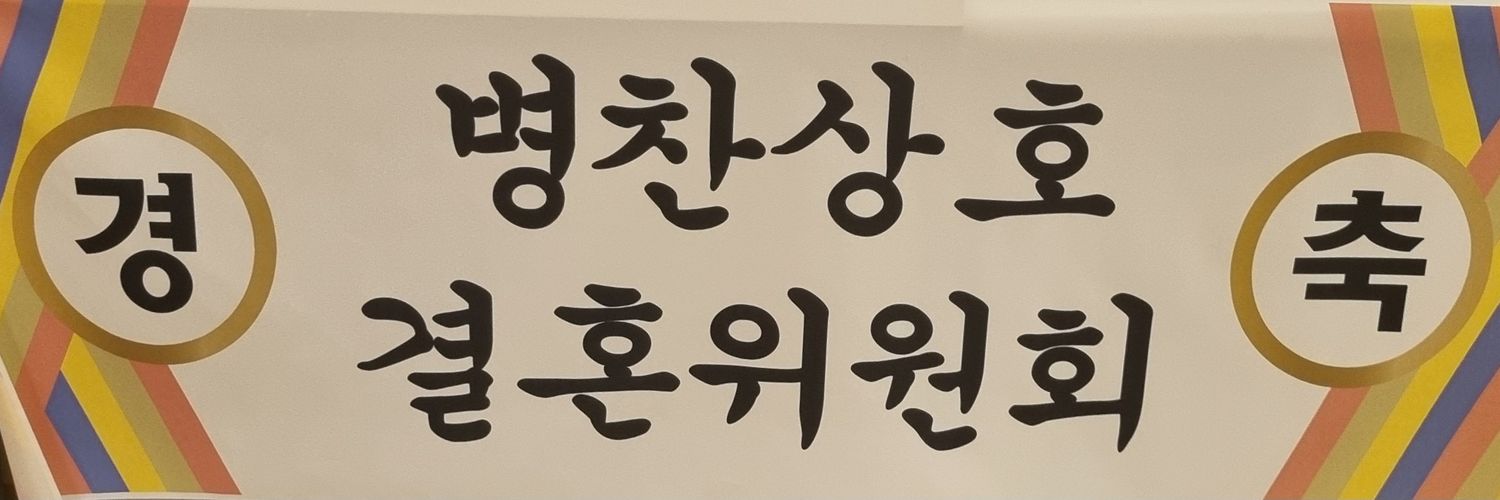 병찬상호
경 축
결혼위원회